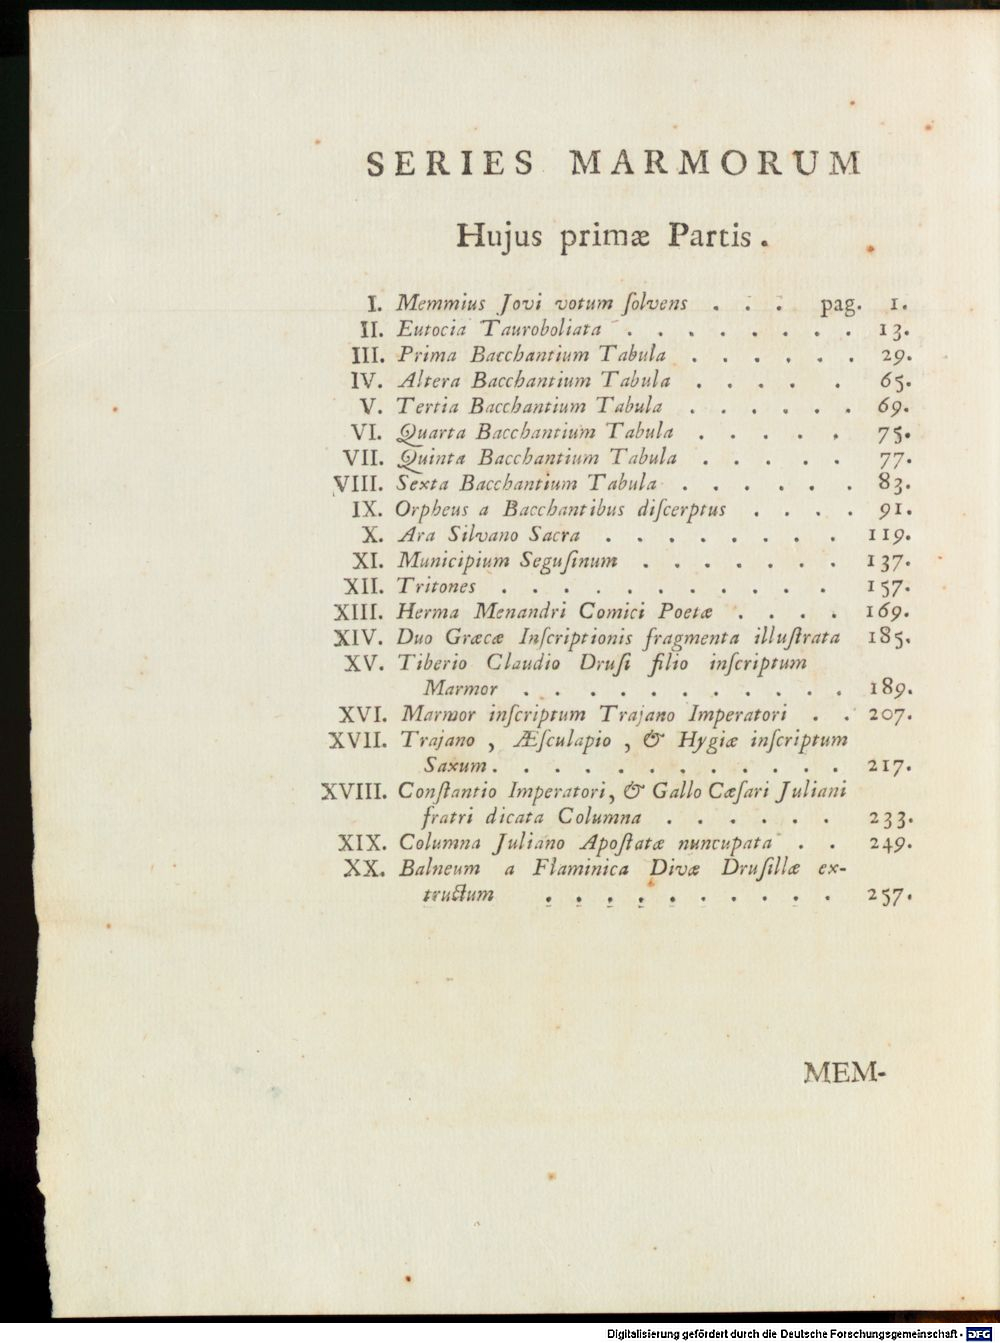 SERIES MARMORUM
Hujus primæ Partis.
I. Memmius Jovi votum ſolvens . . . pag. 1.
II. Eutocia Tauroboliata . . . . . . . . 13.
III. Prima Bacchantium Tabula . . . . . . 29.
IV. Altera Bacchantium Tabula . . . . . 65.
V. Tertia Bacchantium Tabula . . . . . . 69.
VI. Quarta Bacchantium Tabula . . . . . 75.
VII. Quinta Bacchantium Tabula . . . . . 77.
VIII. Sexta Bacchantium Tabula . . . . . . 83.
IX. Orpheus a Bacchantibus diſcerptus . . . . 91.
X. Ara Silvano Sacra . . . . . . . . 119.
XI. Municipium Seguſinum . . . . . . . 137.
XII. Tritones . . . . . . . . . . . 157.
XIII. Herma Menandri Comici Poetæ . . . . 169.
XIV. Duo Græcæ Inſcriptionis fragmenta illuſtrata 185.
XV. Tiberio Claudio Druſi filio inſcriptum
Marmor . . . . . . . . . . . 189.
XVI. Marmor inſcriptum Trajano Imperatori . . 207.
XVII. Trajano , Æſculapio , & Hygiæ inſcriptum
Saxum . . . . . . . . . . . . 217.
XVIII. Conſtantio Imperatori, & Gallo Cæſari Juliani
fratri dicata Columna . . . . . . 233.
XIX. Columna Juliano Apoſtatæ nuncupata . . 249.
XX. Balneum a Flaminica Divæ Druſillæ ex-
tructum . . . . . . . . . . 257.
MEM-
Digitalisierung gefördert durch die Deutsche Forschungsgemeinschaft - DFG